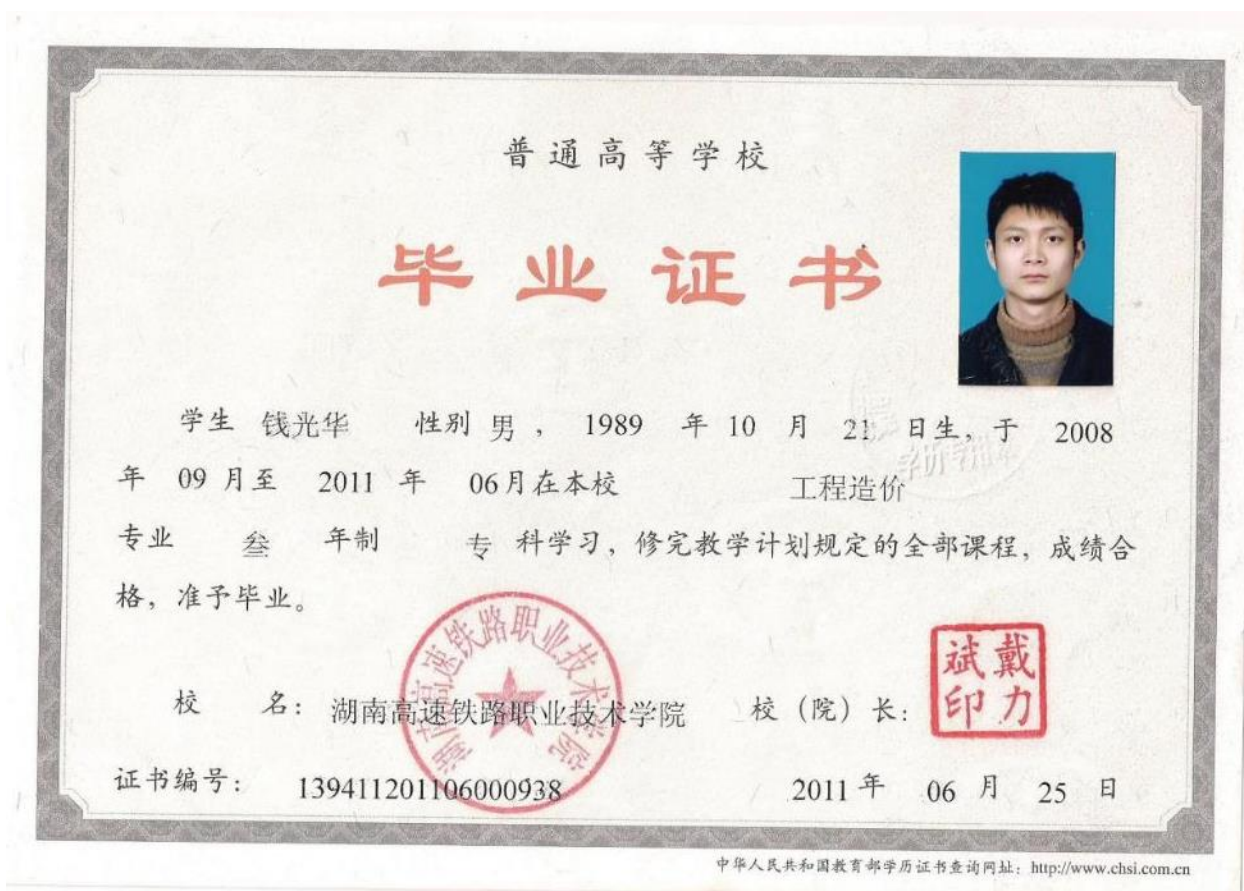 普通高等学校
毕业证书
学生 钱光华 性别 男 ， 1989 年 10 月 21 日生，于 2008
年 09 月至 2011 年 06月在本校 工程造价
专业 叁 年制 专 科学习，修完教学计划规定的全部课程，成绩合
格，准予毕业。
湖南高速铁路职业技术学院
戴力斌印
校 名：湖南高速铁路职业技术学院 校（院）长：
证书编号： 139411201106000938 2011 年 06 月 25 日
中华人民共和国教育部学历证书查询网址：http://www.chsi.com.cn